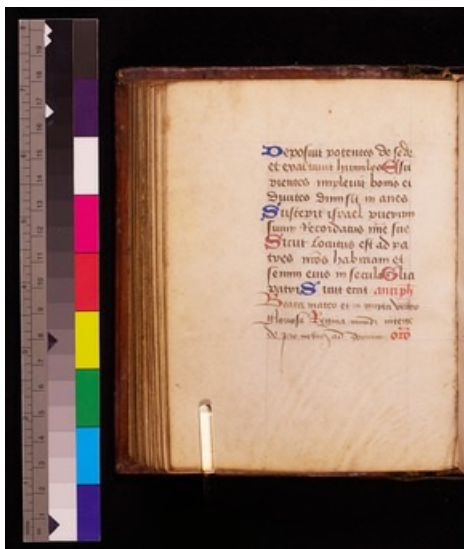 Deposuit potentes de sede
et exaltauit humiles Esu
rientes impleuit bonis et
diuites dimisit in anes
Suscepit israel puerum
suum Recordatus mie sue
Sicut Locutus est ad pa
tres nros habraam et
semini eius in secula Glia
patri Sicut erat antiph
Beata mater et
gloriosa Regina mundi interc
de pro nobis ad oro